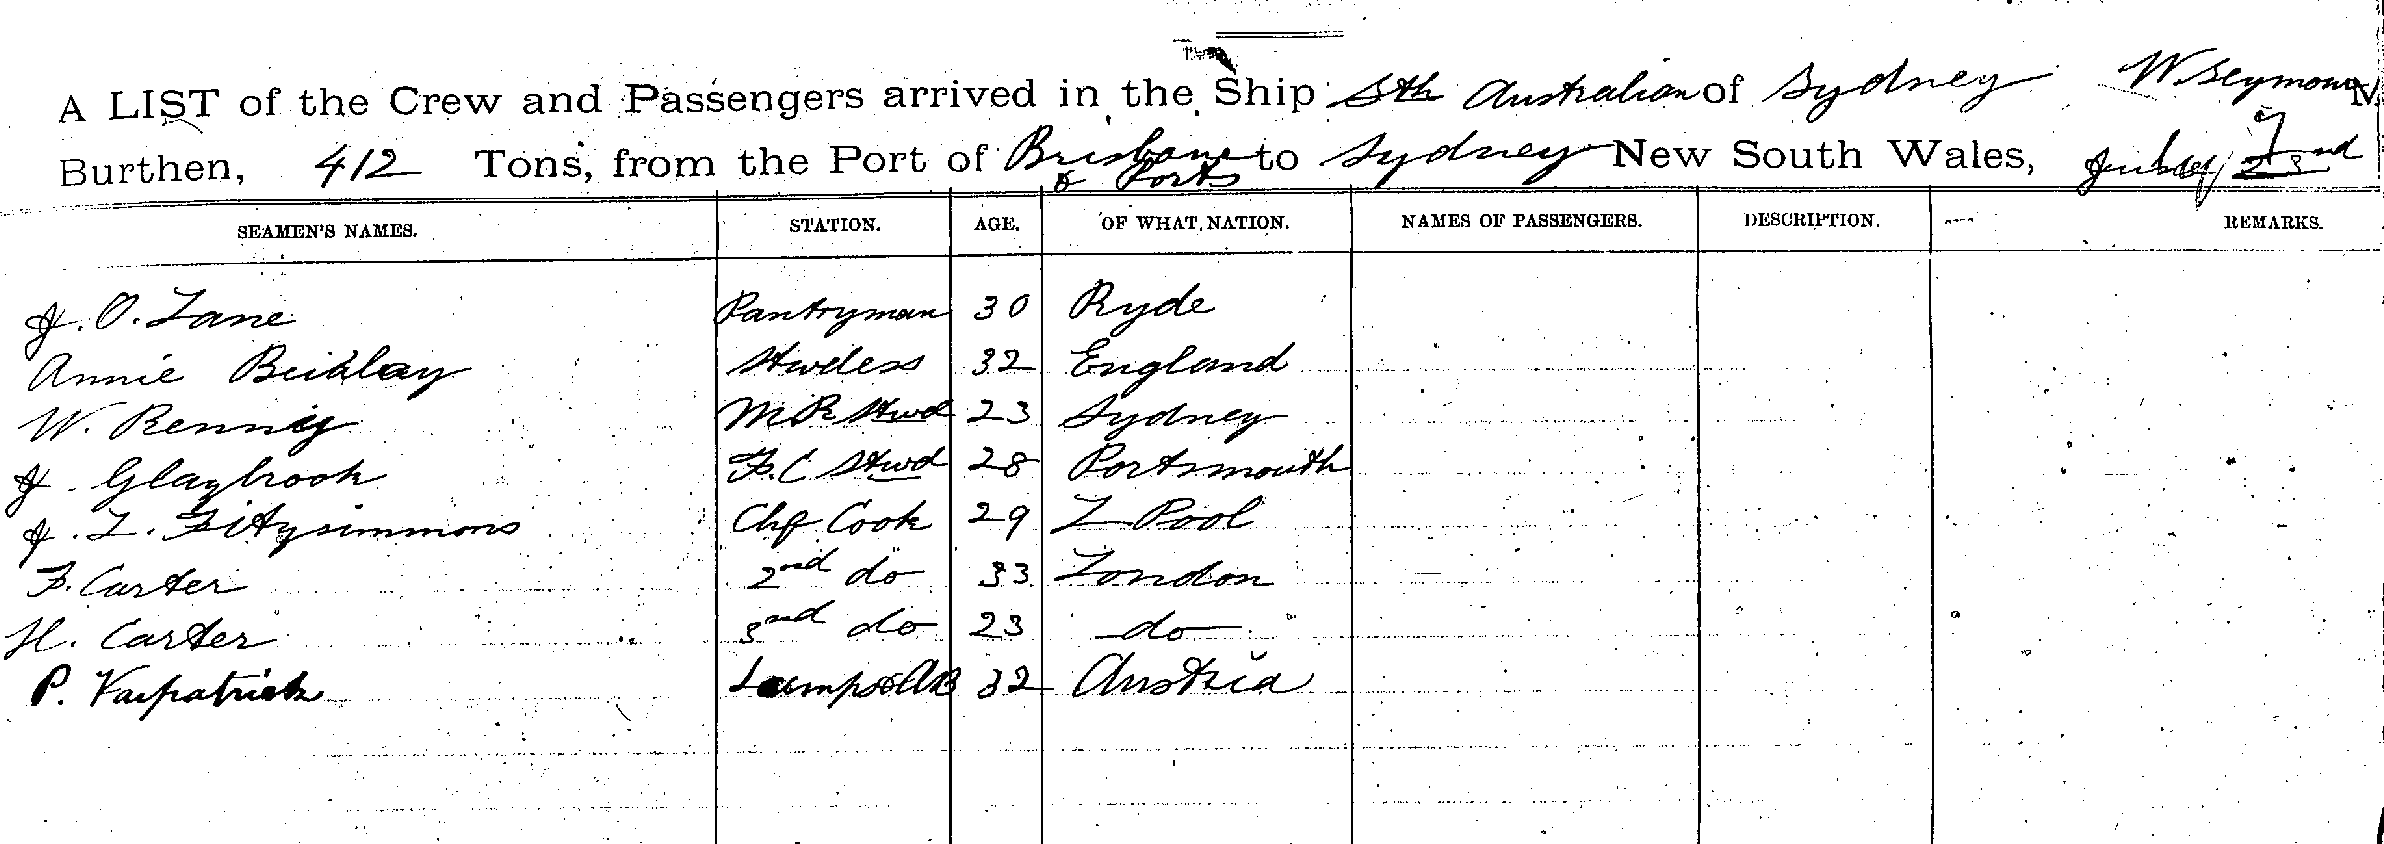 A LIST of the Crew and Passengers arrived in the Ship Sth Australian of Sydney W. Seymour
Burthen, 412 Tons, from the Port of Brisbane & Ports to Sydney New South Wales,
SEAMEN'S NAMES. STATION. AGE. OF WHAT NATION. NAMES OF PASSENGERS. DESCRIPTION. REMARKS.
J. O. Lane Pantryman 30 Ryde
Annie Stwdess 32 England
W. Rennie M R Stwd 23 Sydney
J. Glaybrook F. C Stwd 28 Portsmouth
J. L. Fitzsimmons Chf Cook 29 L Pool
F. Carter 2nd do 33 London
H. Carter 3rd do 23 do
P. Lamps & AB 32 Austria